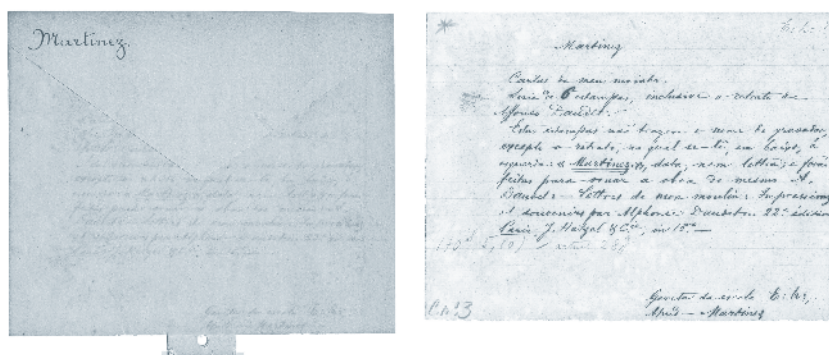 Martinez.
Martinez
Cartas do meu moinho.
Serie de 6 estampas, inclusive o retrato de
Affonso Daudet.
Estas estampas não trazem o nome do gravador,
excepto o retrato, no qual se lê, em baixo, á
esquerda: Martinez, data, nem lettra; e foram
feitas para ornar a obra do mesmo A.
Daudet: Lettres de mon moulin: Impressions
et souvenirs par Alphonse Daudet 22e édition
Paris, J. Hetzel & Cie, in 18º
C. Nº 3
Gravetas da escola
Martinez